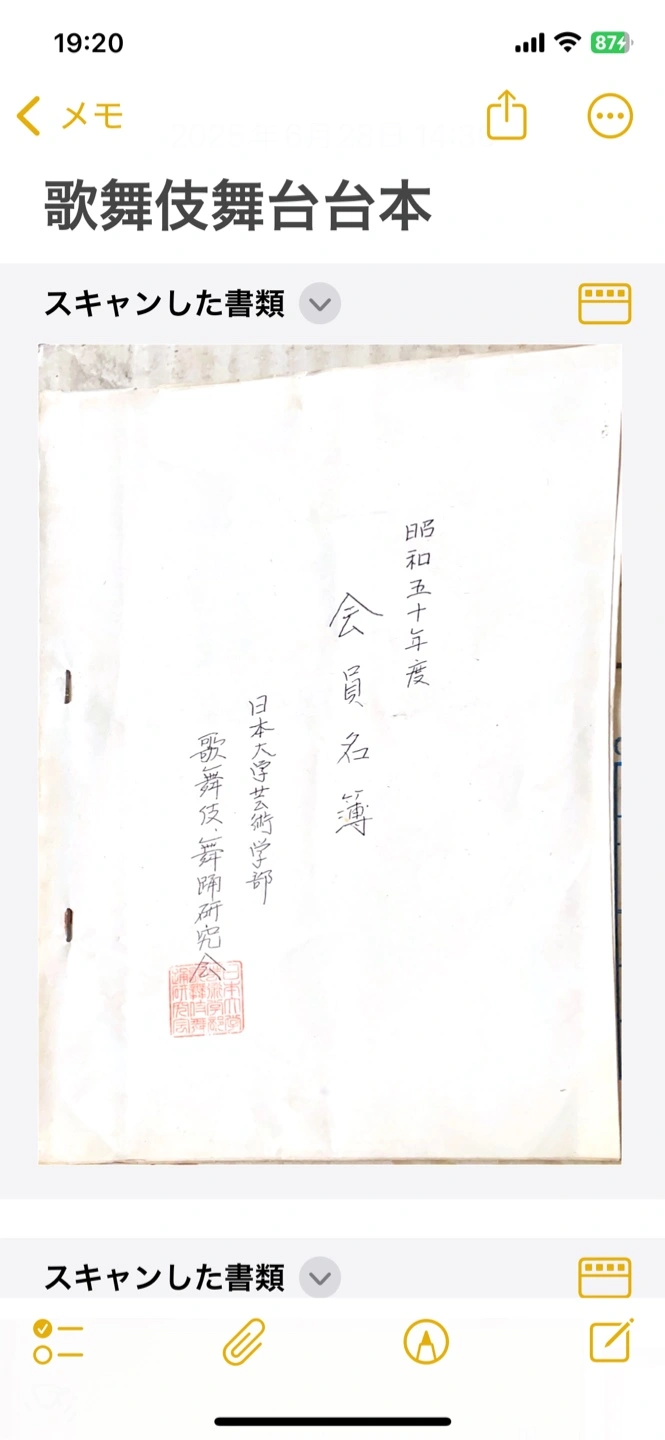 19:20
87
メモ
歌舞伎舞台台本
スキャンした書類
昭和五十年度
会員名簿
日本大学芸術学部
歌舞伎、舞踊研究会
スキャンした書類